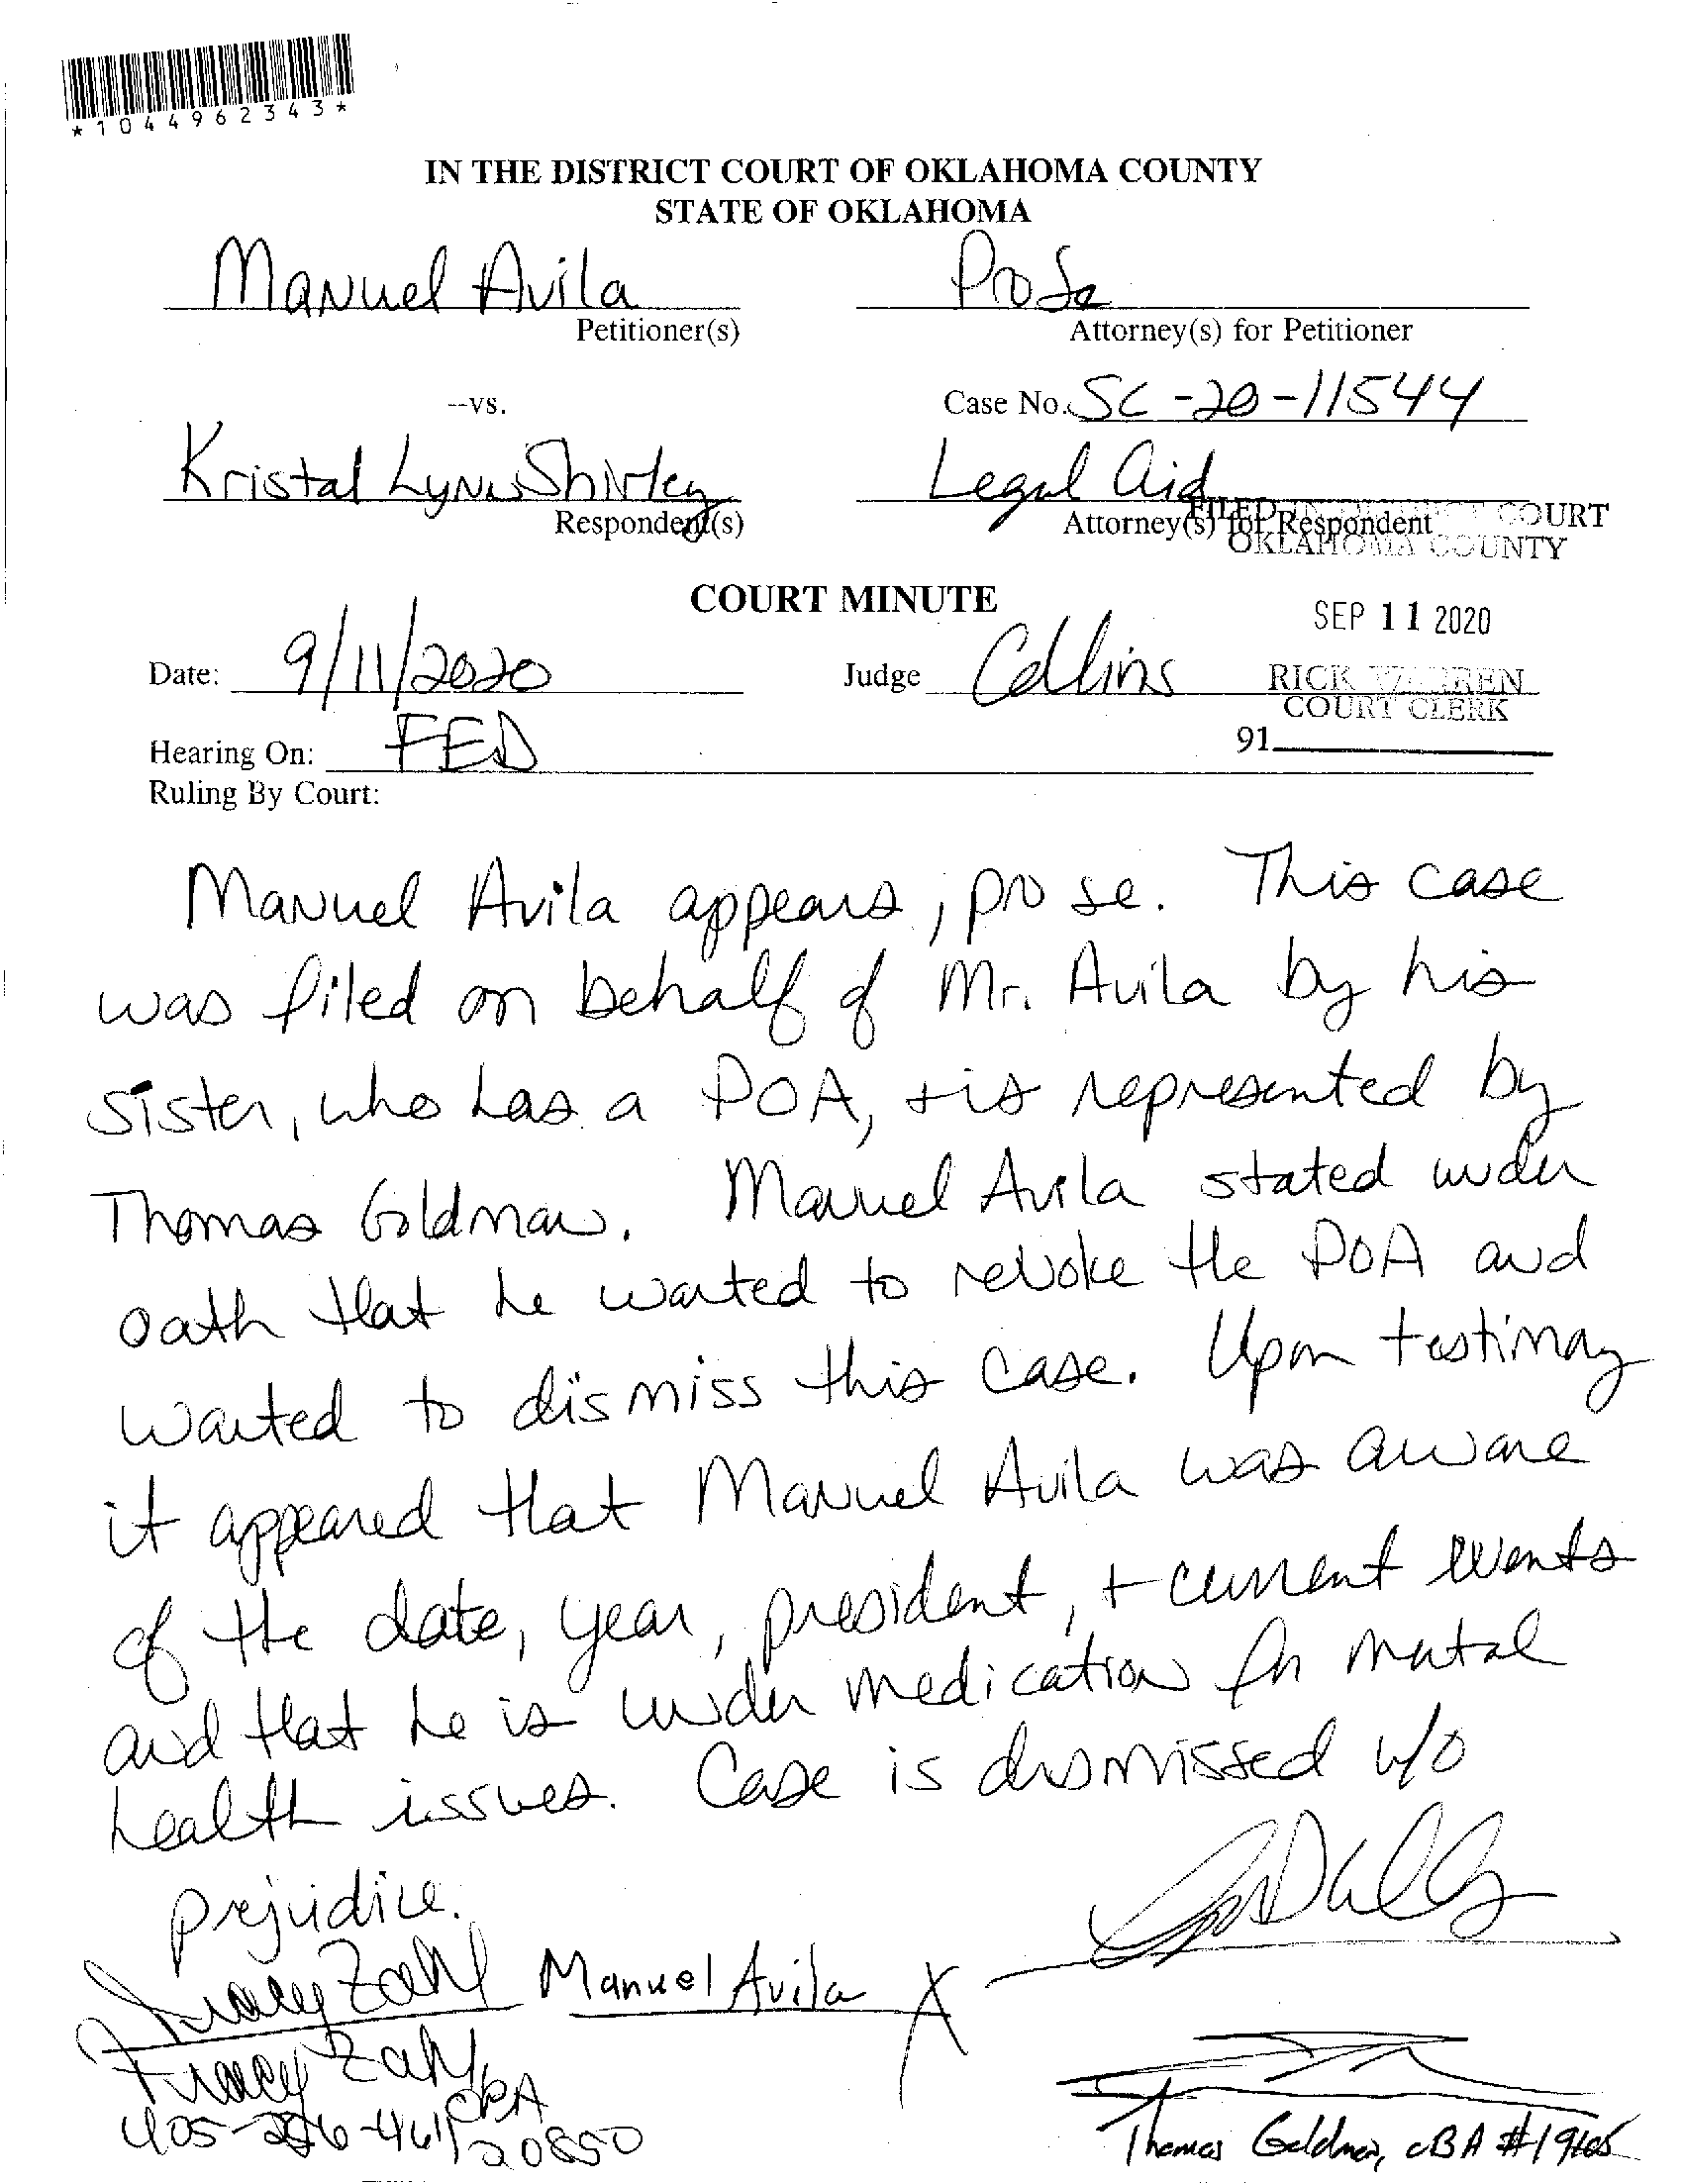 *1044962343*
IN THE DISTRICT COURT OF OKLAHOMA COUNTY
STATE OF OKLAHOMA
Manuel Avila Pro Se
Petitioner(s) Attorney(s) for Petitioner
--vs. Case No. SC-20-11544
Kristal Lynn Shirley Legal Aid
Respondent(s) Attorney(s) for Respondent
FILED IN DISTRICT COURT
OKLAHOMA COUNTY
COURT MINUTE
SEP 11 2020
Date: 9/11/2020 Judge Collins
RICK WARREN
COURT CLERK
Hearing On: FED
91
Ruling By Court:
Manuel Avila appears, pro se. This case
was filed on behalf of Mr. Avila by his
sister, who has a POA, + is represented by
Thomas Goldman. Manuel Avila stated under
oath that he wanted to revoke the POA and
wanted to dismiss this case. Upon testimony
it appeared that Manuel Avila was aware
of the date, year, president, + current events
and that he is under medication for mental
health issues. Case is dismissed w/o
prejudice.
Tracy Zahl Manuel Avila X
Tracy Zahl
OBA
20850
Thomas Goldman, OBA #